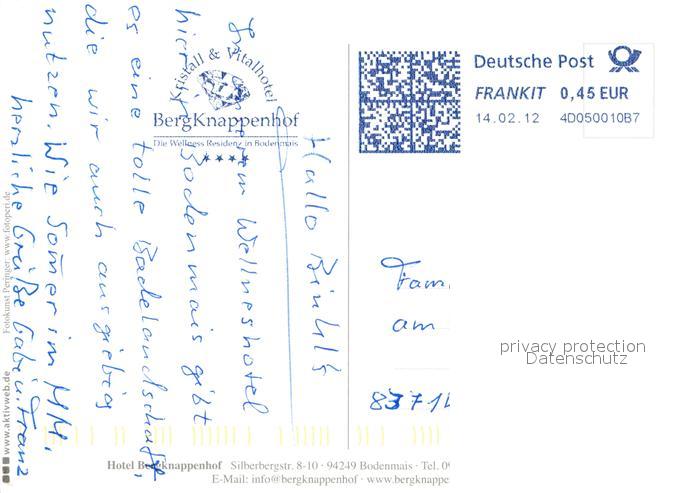 Kristall & Vitalhotel
BergKnappenhof
Die Wellness Residenz in Bodenmais
Hallo
Wellneshotel
hier Bodenmais gibt
es eine tolle Badelandschaft,
die wir auch ausgiebig
nutzen. Wie Sommer im
herzliche Grüße Gabi u. Franz
Deutsche Post
FRANKIT 0,45 EUR
14.02.12 4D050010B7
Fam.
am
privacy protection
Datenschutz
8371
Hotel Bergknappenhof Silberbergstr. 8-10 · 94249 Bodenmais · Tel. 09
E-Mail: info@bergknappenhof · www.bergknappen
www.aktivweb.de Fotokunst Peringer: www.fotoperi.de